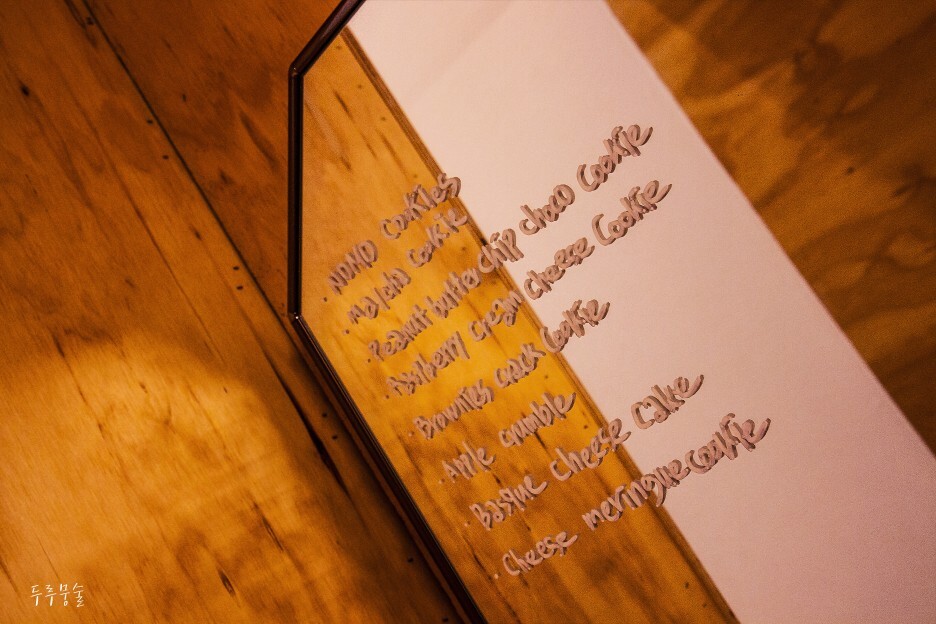 NOMO cookies
· cookie
· Peanut butter chip choco cookie
· cream cheese cookie
· Brownies crack cookie
· Apple crumble
· Basque cheese cake
· Cheese meringue cookie
두루뭉술